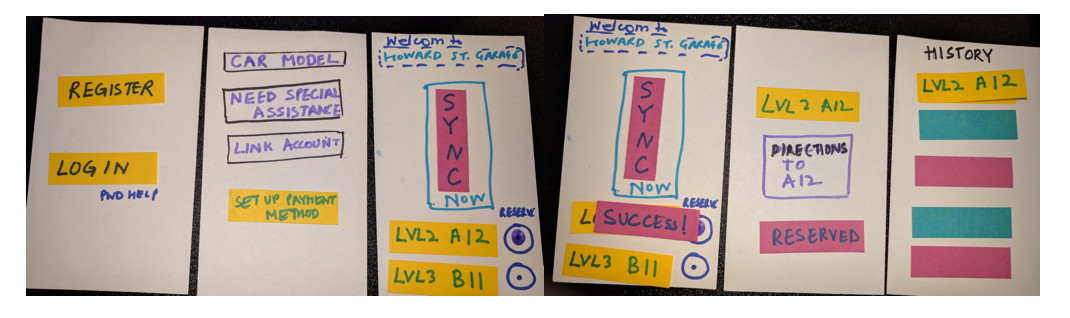 REGISTER
LOGIN
PWD HELP
CAR MODEL
NEED SPECIAL
ASSISTANCE
LINK ACCOUNT
SET UP PAYMENT
METHOD
Welcom to
HOWARD ST. GARAGE
SYNC
NOW
RESERVE
LVL2 A12
LVL3 B11
Welcome to
HOWARD ST. GARAGE
SYNC
NOW
RESERVE
L
SUCCESS!
LVL3 B11
LVL2 A12
DIRECTIONS
TO
A12
RESERVED
HISTORY
LVL2 A12